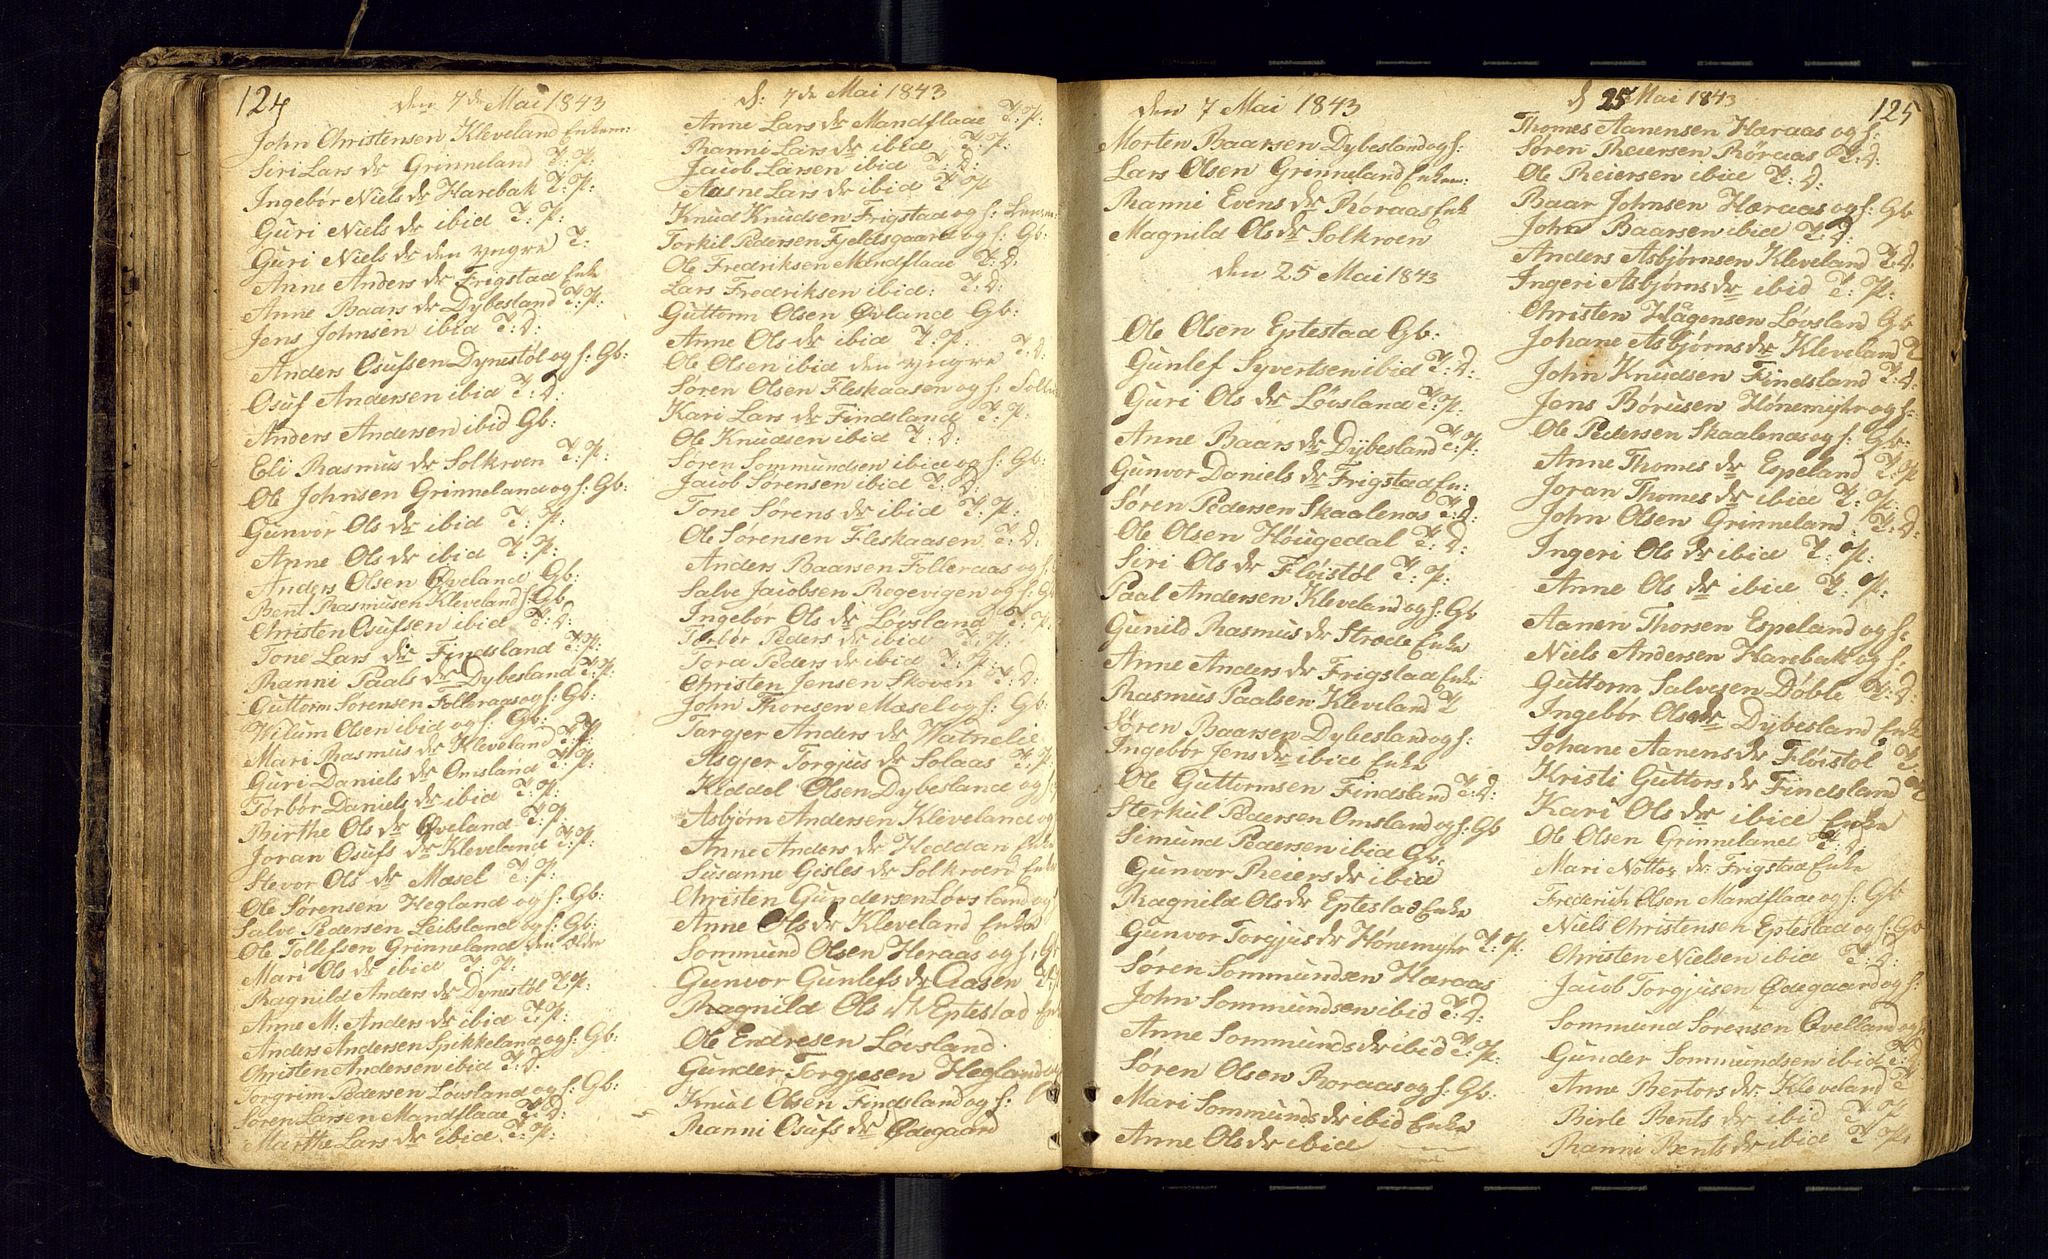 124
den 7de Mai 1843
John Christensen Kleveland Enkem:
Siri Lars dr Grinneland T: P:
Ingebør Niels dr Harebak T: P:
Guri Niels dr ibid T: P:
Guri Niels dr den yngre T:
Anne Anders dr Frigstad Enke
Anne Baars dr Dybesland T: P:
Jens Johnsen ibid T: D:
Anders Osufsen Dynestøl og h: Gb:
Osuf Andersen ibid T: D:
Anders Andersen ibid Gb:
Eli Rasmus dr Solkroen T: P:
Ole Johnsen Grinneland og h: Gb:
Gunvor Ols dr ibid T: P:
Anne Ols dr ibid T: P:
Anders Olsen Øveland Gb:
Bent Rasmusen Kleveland h: Gb
Christen Osufsen ibid T: D:
Tone Lars dr Findsland T: P:
Ranni Paals dr Dybesland T: P:
Guttorm Sørensen Folleraas og h: Gb:
Wilum Olsen ibid og h: Gb:
Mari Rasmus dr Kleveland T: P:
Guri Daniels dr Omsland T: P:
Torbør Daniels dr ibid T: P:
Birthe Ols dr Øveland T: P:
Joran Osufs dr Kleveland T: P:
Stevor Ols dr Mæsel T: P:
Ole Sørensen Hegland og h: Gb:
Salve Pedersen Leibsland og h: Gb:
Ole Tollefsen Grinneland den ældre
Mari Ols dr ibid T: P:
Ragnild Anders dr Dynestøl T: P:
Anne M: Anders dr ibid T: P:
Anders Andersen Spikkeland og h: Gb:
Christen Andersen ibid T: D:
Torgrim Pedersen Løvsland og h: Gb:
Søren Larsen Mandflaae T: D:
Marthe Lars dr ibid T: P:
d: 7de Mai 1843
Anne Lars dr Mandflaae T: P:
Ranni Lars dr ibid T: P:
Jacob Larsen ibid T: D:
Aasne Lars dr ibid T: P
Knud Knudsen Frigstad og h:
Torkil Pedersen Fjeldsgaard og h: Gb:
Ole Fredriksen Mandflaae T: D:
Lars Fredriksen ibid: T: D:
Guttorm Olsen Øvland Gb:
Anne Ols dr ibid T: P:
Ole Olsen ibid den yngre T: D:
Søren Olsen Fleskaasen og h:
Kari Lars dr Findsland T: P:
Ole Knudsen ibid T: D:
Søren Sommundsen ibid og h: Gb:
Jacob Sørensen ibid T: D:
Tone Sørens dr ibid T: P:
Ole Sørensen Fleskaasen T: D:
Anders Baarsen Folleraas og h:
Salve Jacobsen Røgevigen og h: Gb
Ingebør Ols dr Løvsland T: P
Torbør Peders dr ibid T: P:
Tora Peders dr ibid T: P:
Christen Jensen Skoven T: D:
John Thoresen Mæsel og h: Gb:
Targjer Anders dr Watnelie
Asgjer Torgjus dr Solaas T: P:
Keddel Olsen Dybesland og h:
Asbjørn Andersen Kleveland og
Anne Anders dr Heddan Enke
Susanne Gisles dr Solkroen Enke
Christen Gundersen Løvsland og h
Anne Ols dr Kleveland Enke
Sommund Olsen Heraas og h: Gb
Gunvor Gunlefs dr Aasen T: P
Ragnild Ols dr Eptestad Enke
Ole Endresen Løvsland
Gunder Torgjesen Hegland og
Knud Olsen Findsland og h:
Ranni Osufs dr Ødegaard
den 7 Mai 1843
Morten Baarsen Dybesland og h:
Lars Olsen Grinneland Enkem:
Ranni Evens dr Roraas Enk
Magnild Ols dr Solkroen
den 25 Mai 1843
Ole Olsen Eptestad Gb:
Gunlef Syvertsen ibid T: D:
Guri Ols dr Løvsland T: P:
Anne Baars dr Dybesland T: P:
Gunvor Daniels dr Frigstad En:
Søren Pedersen Skaalenas T: D:
Ole Olsen Høugedal T: D:
Siri Ols dr Fløistøl T: P:
Paal Andersen Kleveland og h: Gb
Gunild Rasmus dr Strøde Enke
Anne Anders dr Frigstad Enke
Rasmus Paalsen Kleveland T
Søren Baarsen Dybesland og h:
Ingebør Jens dr ibid Enke
Ole Guttormsen Findsland T: D:
Sterkul Pedersen Omsland og h: Gb
Simund Pedersen ibid Gb:
Gunvor Reiers dr ibid
Ragnild Ols dr Eptestad Enke
Gunvor Torgjus dr Hønemyhr T: P:
Søren Sommundsen Hæraas
John Sommundsen ibid T: D:
Anne Sommunds dr ibid T: P:
Søren Olsen Roraas og h: Gb:
Mari Sommunds dr ibid Enke
Anne Ols dr ibid
125
d 25 Mai 1843
Thomas Aanensen Hæraas og h:
Søren Reiersen Røraas T: D:
Ole Reiersen ibid T: D:
Baar Johnsen Hæraas og h: Gb
John Baarsen ibid T: D:
Anders Asbjørnsen Kleveland T: D:
Ingeri Asbjørns dr ibid T: P:
Christen Hågensen Løvsland Gb
Johane Asbjørns dr Kleveland T
John Knudsen Findsland T: D:
Jens Børusen Hønemyhr og h:
Ole Pedersen Skaalenas og h: Gb:
Anne Thomes dr Espeland T: P
Joran Thomes dr ibid T: P:
John Olsen Grinneland T: D:
Ingeri Ols dr ibid T: P:
Anne Ols dr ibid T: P:
Aanen Thorsen Espeland og h:
Niels Andersen Harebak og h:
Guttorm Salvesen Døble T: D:
Ingebør Ols dr Dybesland Enke
Johane Aanens dr Fløistøl T
Kristi Guttors dr Findsland
Kari Ols dr ibid Enke
Ole Olsen Grinneland T: D
Mari Nottos dr Frigstad Enke
Frederich Olsen Mandflaae og h: Gb
Niels Christensen Eptestad og h: Gb
Christen Nielsen ibid T: D:
Jacob Torgjusen Ødegaard og h:
Sommund Sørensen Øvelland og h
Gunder Sommundsen ibid T: D
Anne Bertors dr Kleveland T
Birle Bents dr ibid T P
Ranni Bents dr ibid T P: